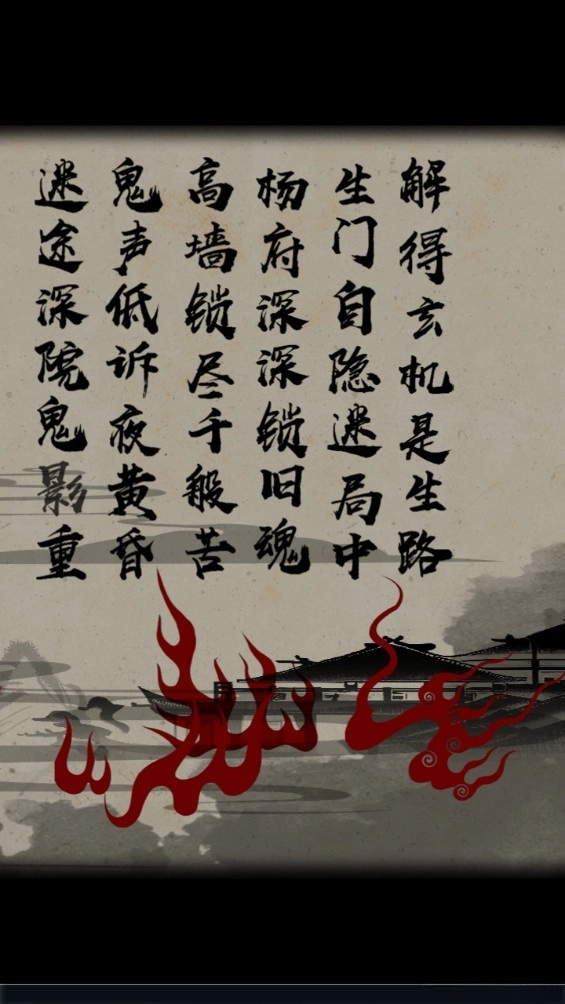 解得玄机是生路
生门自隐迷局中
杨府深深锁旧魂
高墙锁尽千般苦
鬼声低诉夜黄昏
迷途深院鬼影重